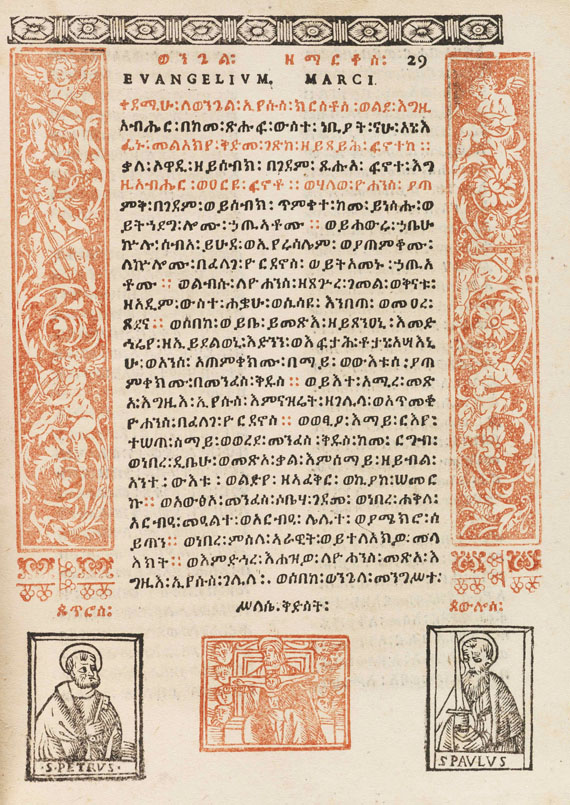 ወንጌል፡ ዘማርቆስ፡ 29
EVANGELIVM. MARCI.
ቀደማሁ፡ለወንጌል፡ኢየሱስ፡ክርስቶስ፡ወልደ፡እግዚ
አብሔር፡በከመ፡ጽሑፍ፡ውስተ፡ነቢያት፡ናሁ፡አነእ
ፌኑ፡መልአክየ፡ቅድመ፡ገጽከ፡ዘይጸይሕ፡ፍኖተከ።
ቃለ፡ዓዋዲ፡ዘይሰብክ፡በገዳም፡ጺሑአ፡ፍኖተ፡እግ
ዚአብሔር፡ወዐርዩ፡ፍኖቶ። ወሀለወ፡ዮሐንስ፡ያጠ
ምቅ፡በገዳም፡ወይሰብክ፡ጥምቀተ፡ከመ፡ይነስሑ፡ወ
ይትኀደግ፡ሎሙ፡ኃጢአቶሙ። ወይሐውሩ፡ኀቤሁ
ኵሉ፡ሰብአ፡ይሁዳ፡ወኢየሩሳሌም፡ወያጠምቆሙ፡
ለኵሎሙ፡በፈለገ፡ዮርዳኖስ፡ወይትአመኑ፡ኃጢአ
ቶሙ። ወልብሱ፡ለዮሐንስ፡ዘጸጕረ፡ገመል፡ወቅናቱ፡
ዘአዲም፡ውስተ፡ሐቌሁ፡ወሲሳዩ፡አንበጣ፡ወመዐረ፡
ጸደና። ወሰበከ፡ወይቤ፡ይመጽእ፡ዘይጸንዐኒ፡እምድ
ኅሬየ፡ዘኢይደልወኒ፡እድንን፡ወእፍታሕ፡ቶታነ፡አሣእኒ
ሁ፡ወአንሰ፡አጠምቀክሙ፡በማይ፡ወውእቱሰ፡ያጠ
ምቀክሙ፡በመንፈስ፡ቅዱስ። ወይእተ፡አሚረ፡መጽ
አ፡እግዚእ፡ኢየሱስ፡እምናዝሬት፡ዘገሊላ፡ወአጥመቆ
ዮሐንስ፡በፈለገ፡ዮርዳኖስ። ወወፂኦ፡እማይ፡ርእየ፡
ተሠጠ፡ሰማይ፡ወወረደ፡መንፈስ፡ቅዱስ፡ከመ፡ርግብ፡
ወነበረ፡ዲቤሁ፡ወመጽአ፡ቃል፡እምሰማይ፡ዘይብል፡
አንተ፡ውእቱ፡ወልድየ፡ዘአፈቅር፡ወኪያከ፡ሠመር
ኩ። ወአውፅኦ፡መንፈስ፡ሶቤሃ፡ገዳመ፡ወነበረ፡ሐቅለ፡
አርብዓ፡መዓልተ፡ወአርብዓ፡ሌሊተ፡ወያሜክሮ፡ሰ
ይጣን፡ወነበረ፡ምስለ፡አራዊት፡ወይተለአክዎ፡መላ
እክት። ወእምድኅረ፡አሐዝዎ፡ለዮሐንስ፡መጽአ፡እ
ግዚእ፡ኢየሱስ፡ገሊላ፡ወሰበከ፡ወንጌለ፡መንግሥተ፡
ሥላሴ.ቅድስት፡
ጴጥሮስ፡
ጳውሎስ፡
·S·PETRVS·
S·PAVLVS